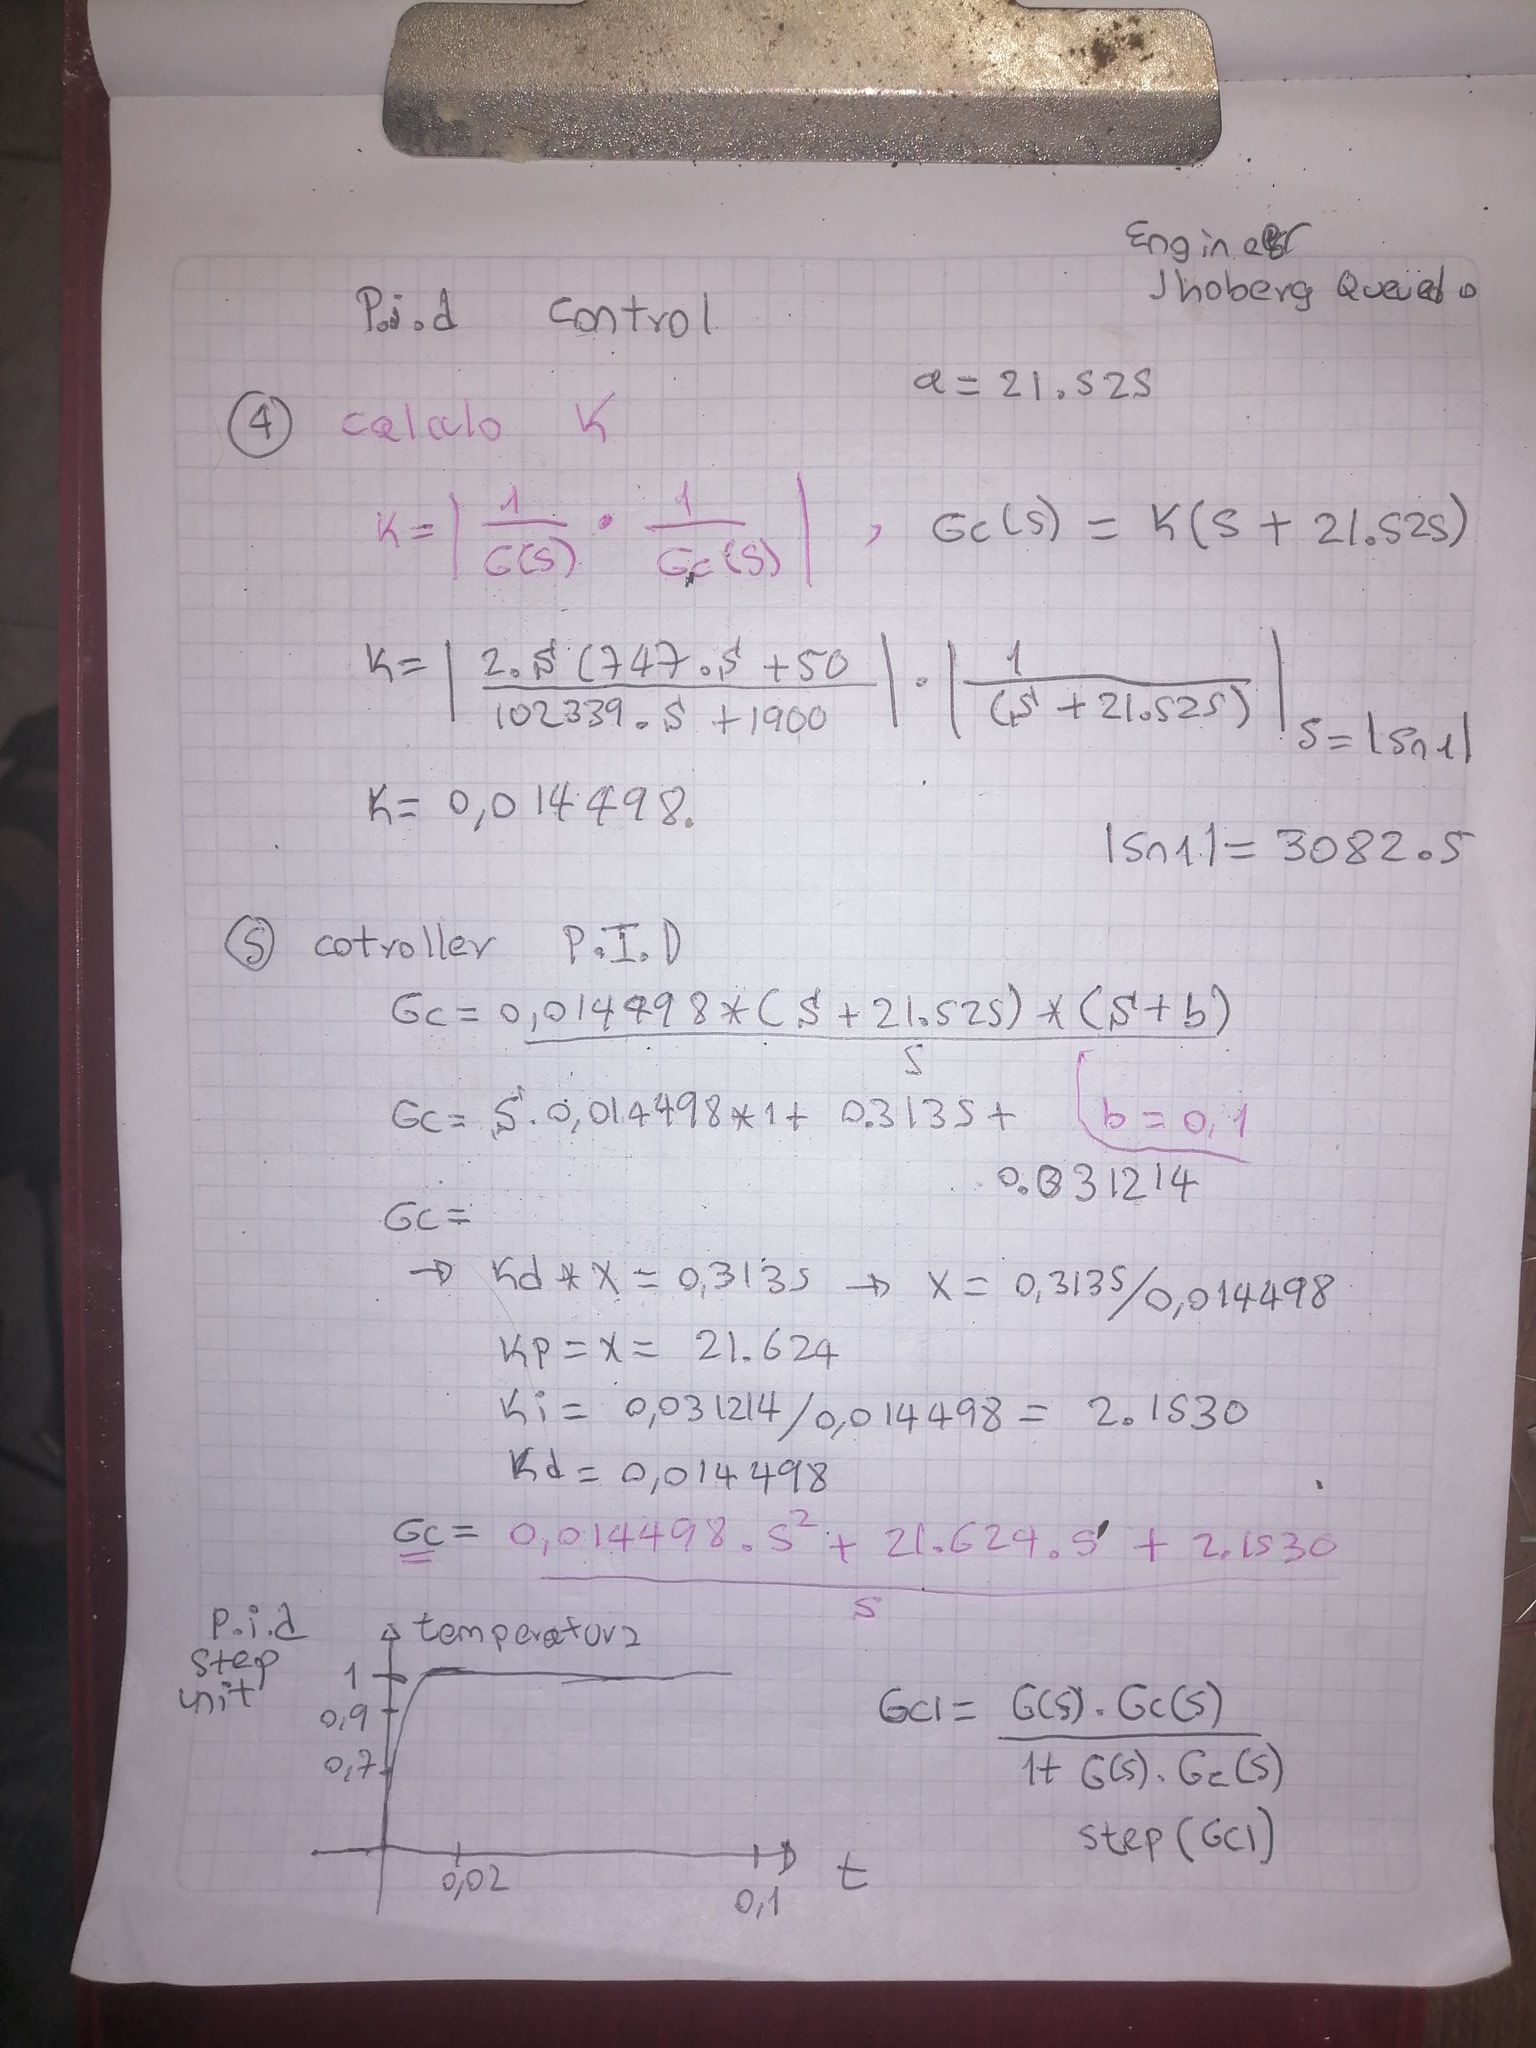 Engineer
Jhoberg Quevedo
P.i.d control
a = 21.525
④ calculo K
K = | 1/G(S) · 1/Gc(S) | , Gc(S) = K(S + 21.525)
K = | 2.S (747.S + 50 / 102339.S + 1900 | · | 1 / (S + 21.525) | S = |Sn1|
K = 0,014498.
|Sn1| = 3082.5
⑤ cotroller P.I.D
Gc = 0,014498 * (S + 21.525) * (S + b) / S
Gc = S.0,014498 * 1 + 0.3135 + b = 0,1
0.031214
Gc =
→ Kd * X = 0,3135 → X = 0,3135/0,014498
Kp = X = 21.624
Ki = 0,031214/0,014498 = 2.1530
Kd = 0,014498
Gc = 0,014498.S² + 21.624.S + 2.1530 / S
P.i.d
step
unit
temperatura
1
0,9
0,7
0,02
0,1
t
Gcl = G(S).Gc(S) / 1 + G(S).Gc(S)
step (Gcl)